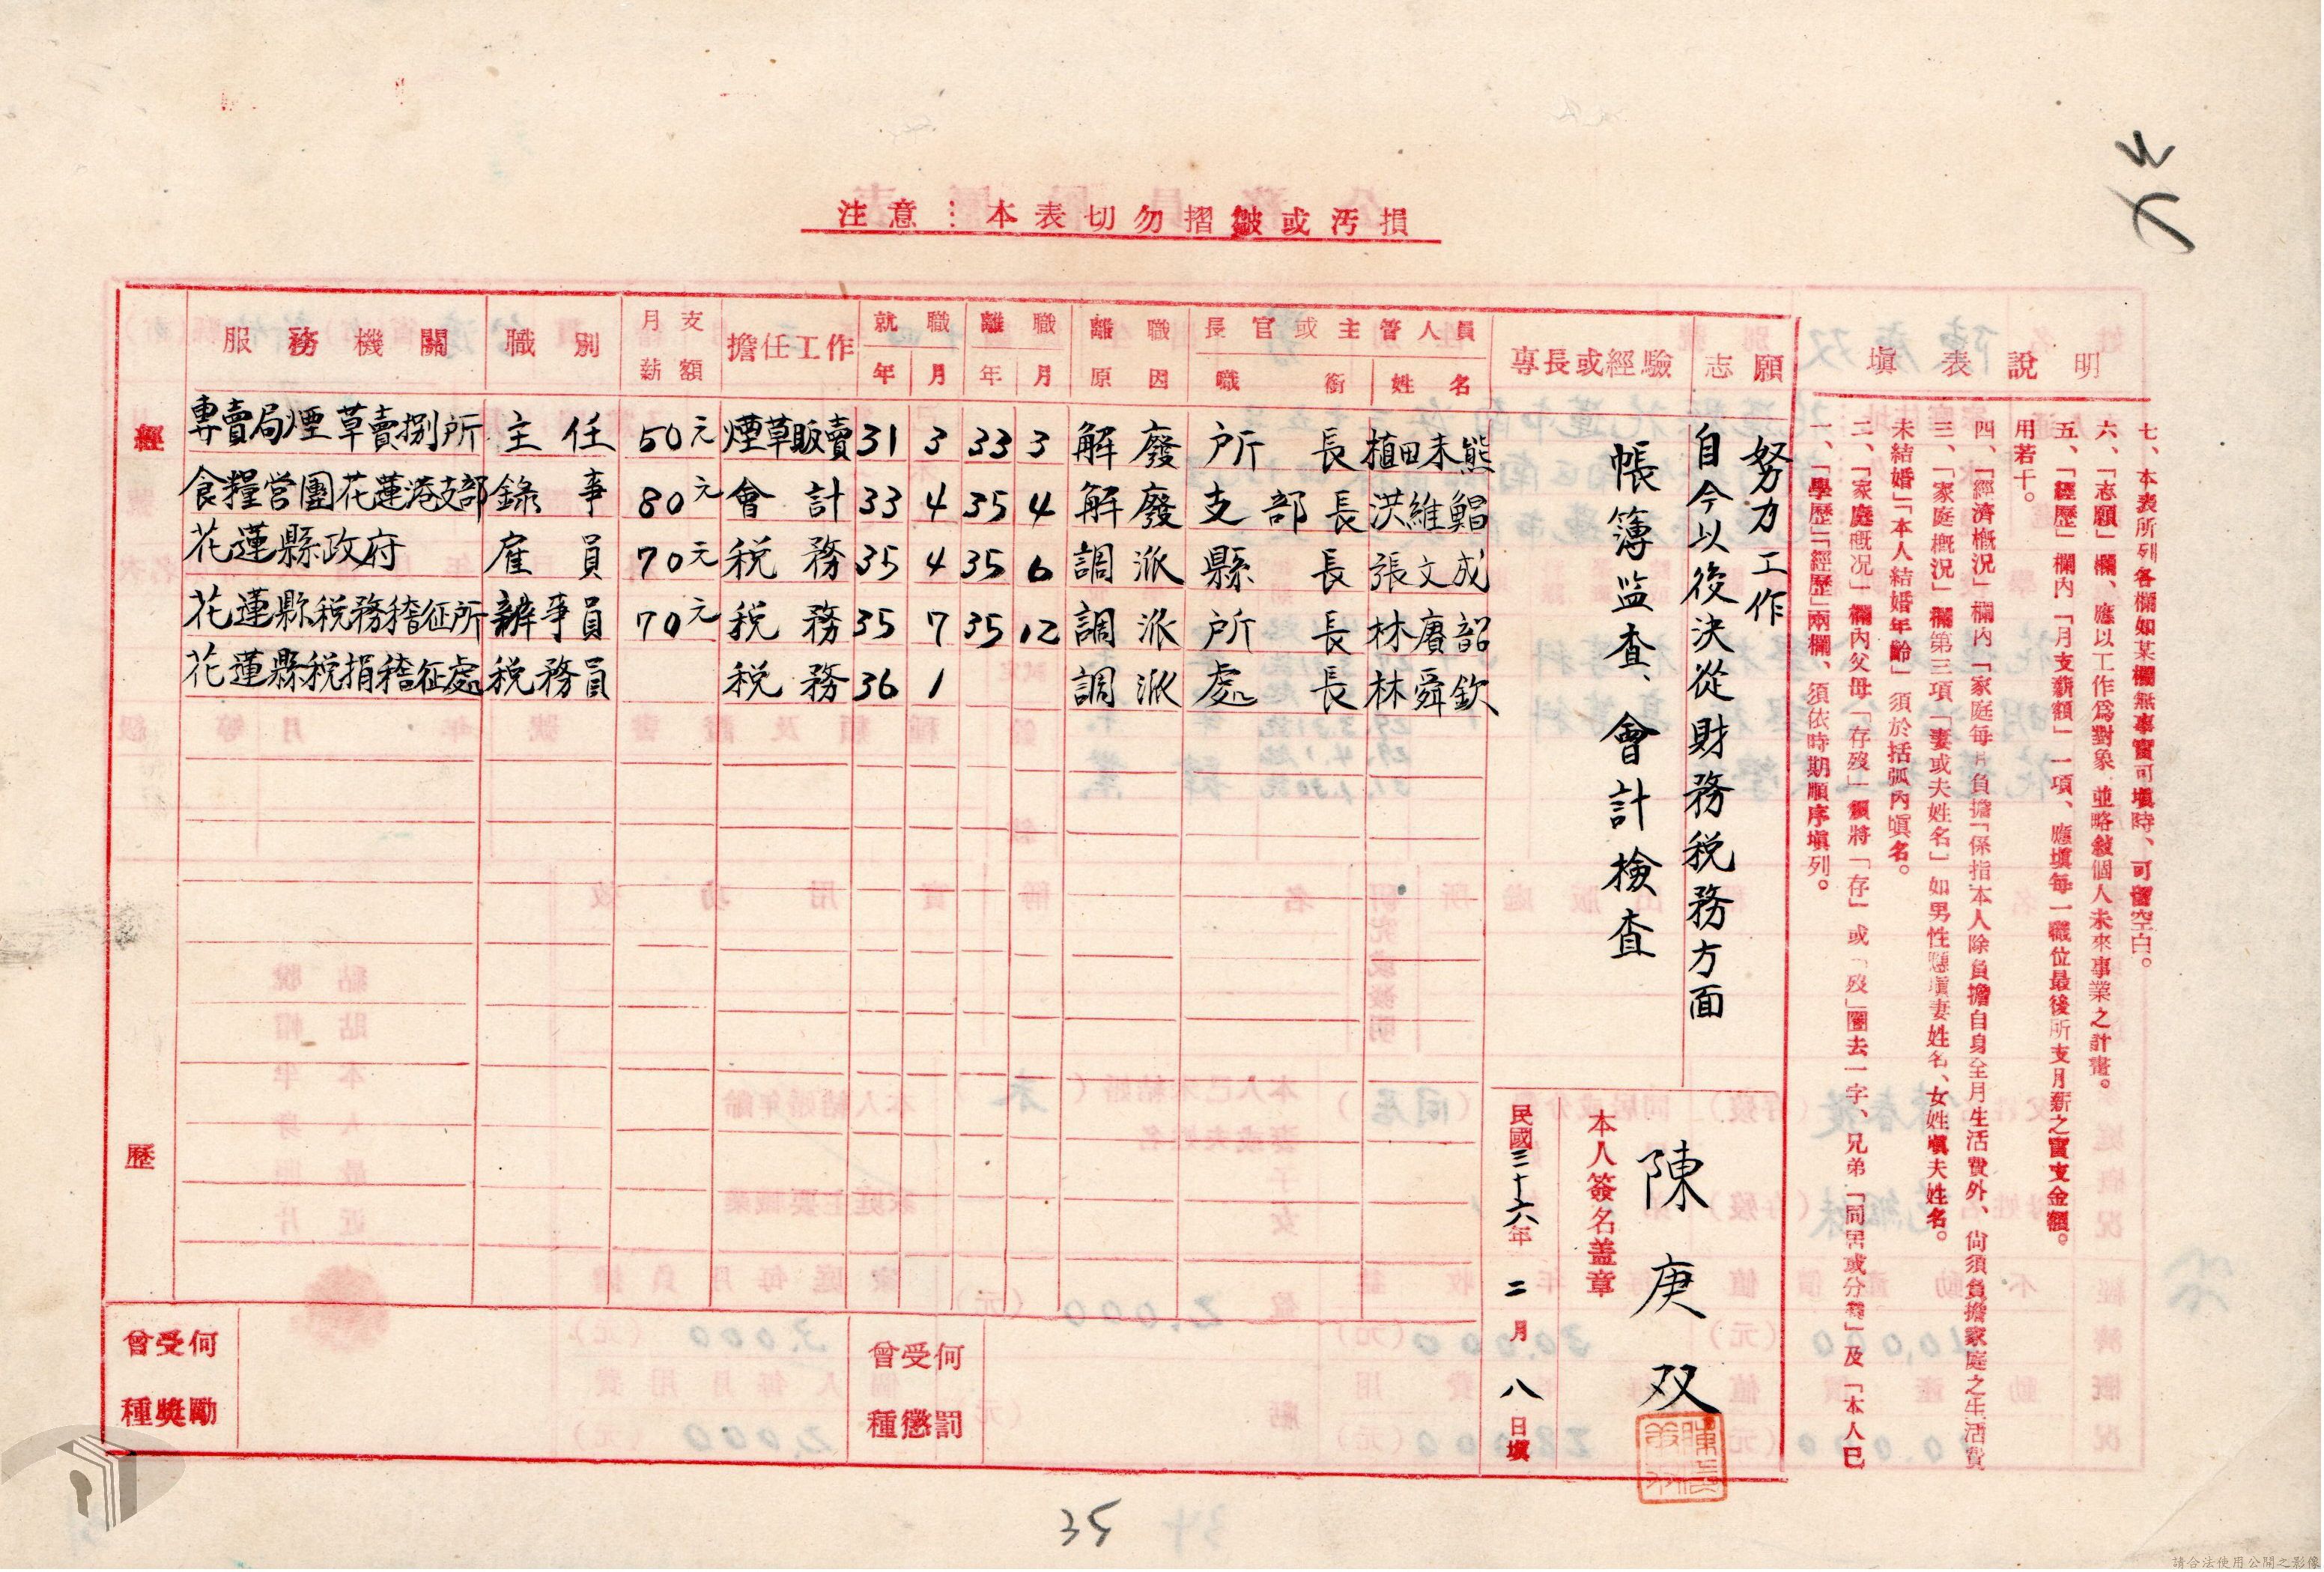 注意：本表切勿摺皺或汚損
填表說明
一、「學歷」「經歷」兩欄、須依時期順序填列。
二、「家庭概況」欄內父母「存歿」須將「存」或「歿」圈去一字、兄弟「同居或分爨」及「本人已
未結婚」「本人結婚年齡」須於括弧內填名。
三、「家庭概況」欄第三項「妻或夫姓名」如男性應填妻姓名、女姓填夫姓名。
四、「經濟概況」欄內「家庭每月負擔」係指本人除負擔自身全月生活費外、尙須負擔家庭之生活費
用若干。
五、「經歷」欄內「月支薪額」一項、應填每一職位最後所支月薪之實支金額。
六、「志願」欄、應以工作爲對象、並略敍個人未來事業之計畫。
七、本表所列各欄如某欄無事實可填時、可留空白。
志願
自今以後決從財務稅務方面
努力工作
專長或經驗
帳簿监查、會計檢查
本人簽名盖章
陳庚双
民國三十六年二月八日填
經歷
服務機關 職別 月支薪額 擔任工作 就職 年 月 離職 年 月 離職原因 長官或主管人員 職銜 姓名
專賣局煙草賣捌所 主任 50元 煙草販賣 31 3 33 3 解廢 所長 植田未熊
食糧営團花蓮港支部 錄事 80元 會計 33 4 35 4 解廢 支部長 洪維鯧
花蓮縣政府 雇員 70元 税務 35 4 35 6 調派 縣長 張文成
花蓮縣税務稽征所 辦事員 70元 税務 35 7 35 12 調派 所長 林賡韶
花蓮縣税捐稽征處 税務員 税務 36 1 調派 處長 林舜欽
曾受何種獎勵
曾受何種懲罰
35
請合法使用公開之影像